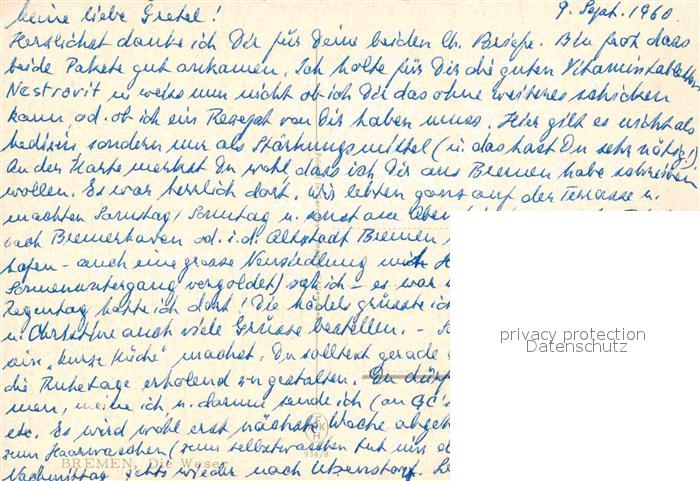 Meine liebe Gretel! 9. Sept. 1960
Herzlichst danke ich Dir für Deine beiden lb. Briefe. Bin froh dass
beide Pakete gut ankamen. Ich holte für Dir die guten Vitamintabletten
Nestrovit u weiss nun nicht ob ich Dir das ohne weiteres schicken
kann, od. ob ich ein Rezept von Dir haben muss. Hier gilt es nicht als
Medizin sondern nur als Stärkungsmittel (u. das hast Du sehr nötig!)
An der Karte merkst Du wohl dass ich Dir aus Bremen habe schreiben
wollen. Es war herrlich dort. Wir lebten ganz auf der Terrasse u.
machten Samstag/Sonntag u. sonst am
nach Bremerhaven od. i. d. Altstadt Bremen
hafen - auch eine grosse Neusiedlung
Sonnenuntergang vergoldet) sah ich - es war
Regentag hatte ich dort! Die Mädels grüsste ich
u. Christine auch viele Grüsse bestellen. -
"kurze Küche" machet. Du solltest gerade
die Ruhetage erholend zu gestalten. Du
meine ich, u. darum sende ich (an
etc. Es wird wohl erst nächste Woche
zum Haarwaschen (zum selbstwaschen tut mir
Nachmittag gehts wieder nach
BREMEN, Die Weser
934/8
privacy protection
Datenschutz